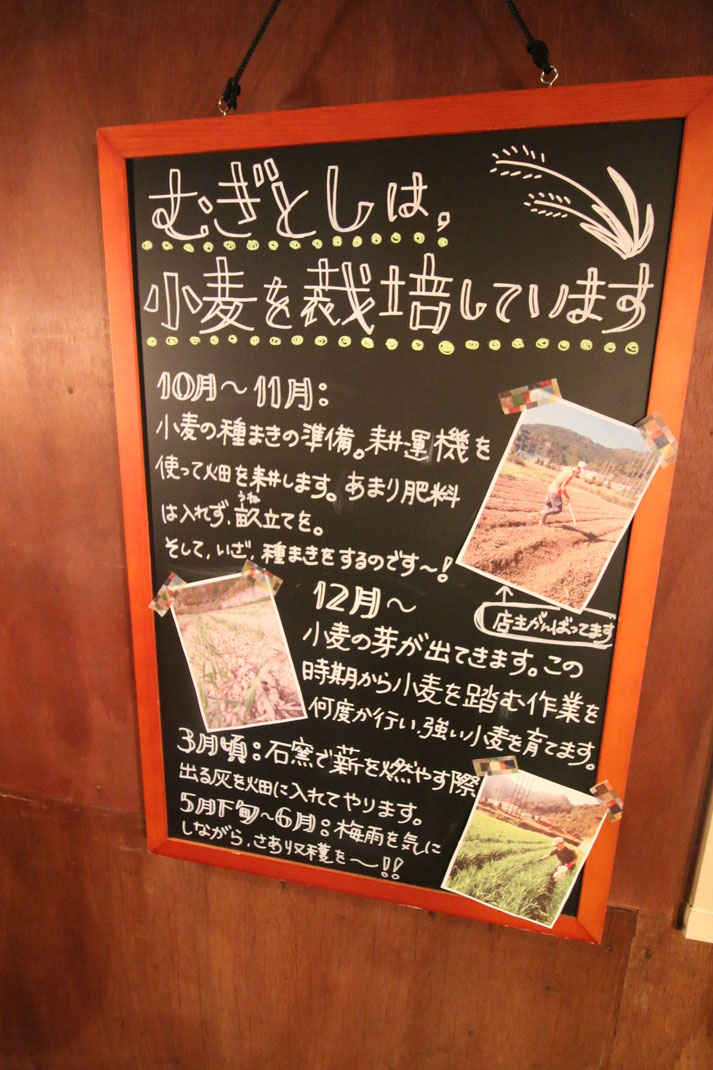 むぎとしは,
小麦を栽培しています
10月〜11月:
小麦の種まきの準備。耕運機を
使って畑を耕します。あまり肥料
うね
は入れず、畝立てを。
そして、いざ、種まきをするのです〜!
店主がんばってます
12月〜
小麦の芽が出てきます。この
時期から小麦を踏む作業を
何度か行い、強い小麦を育てます。
3月頃:石窯で薪を燃やす際
出る灰を畑に入れてやります。
5月下旬〜6月:梅雨を気に
しながら、さあ収穫を〜!!